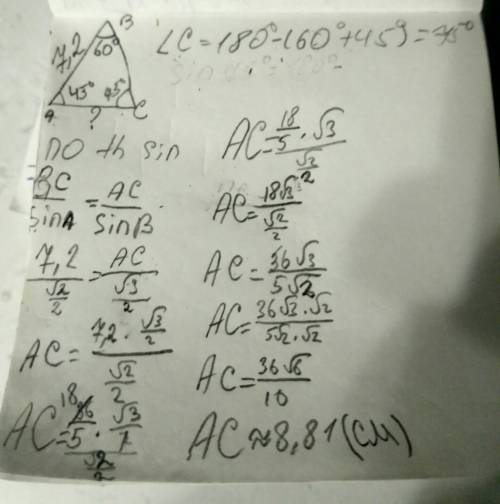 B
7,2
60°
45°
45°
A
?
C
∠C = 180° - (60° + 45°) = 75°
по th sin
BC/sinA = AC/sinB
7,2/(√2/2) = AC/(√3/2)
AC = (7,2 · √3/2)/(√2/2)
AC = (18 36/5 · √3/1)/(√2/2)
AC = (18/5 · √3)/(√2/2)
AC = (18√3/5)/(√2/2)
AC = 36√3/5√2
AC = 36√3 · √2/5√2 · √2
AC = 36√6/10
AC ≈ 8,81 (см)